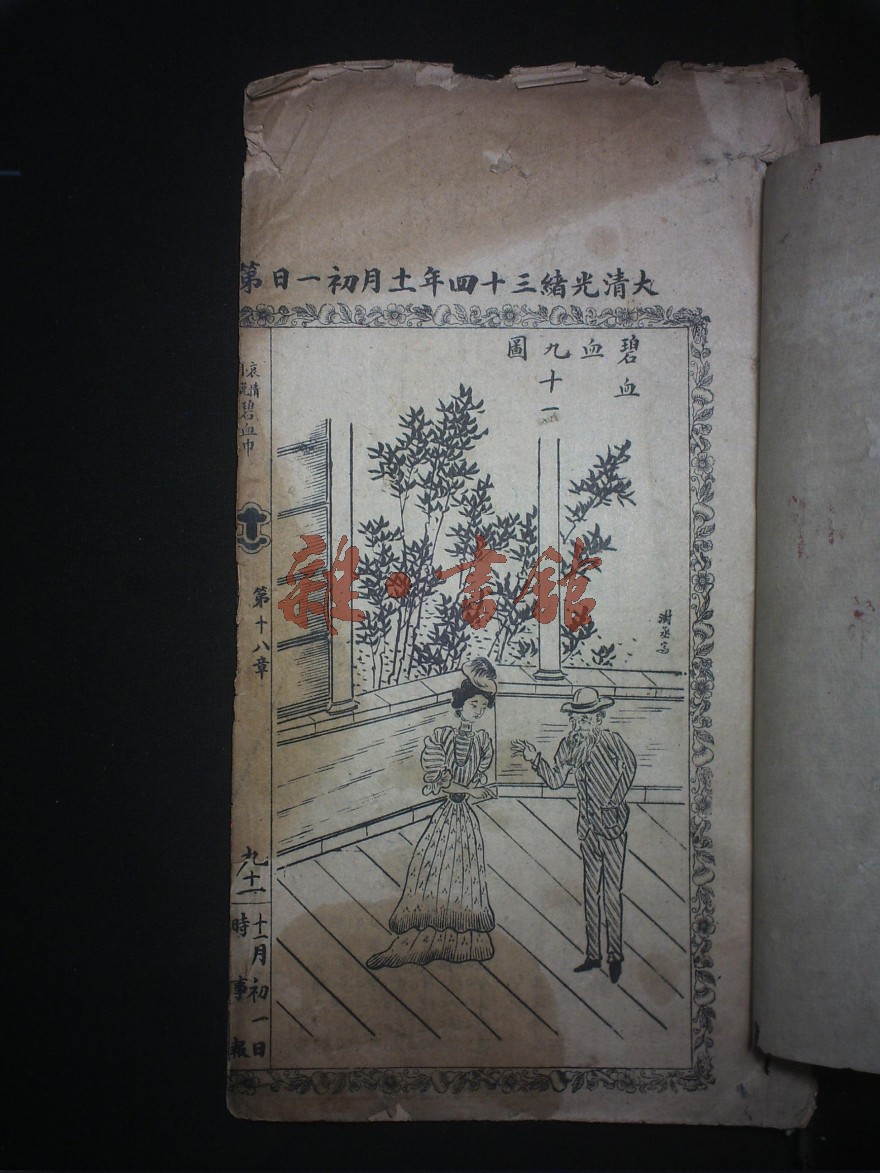 大清光緒三十四年十一月初一日第
碧血
血
九十一
圖
哀情
碧血巾
第十八章
九十一
十一月初一日
時事報
澍丞寫
雜·書館